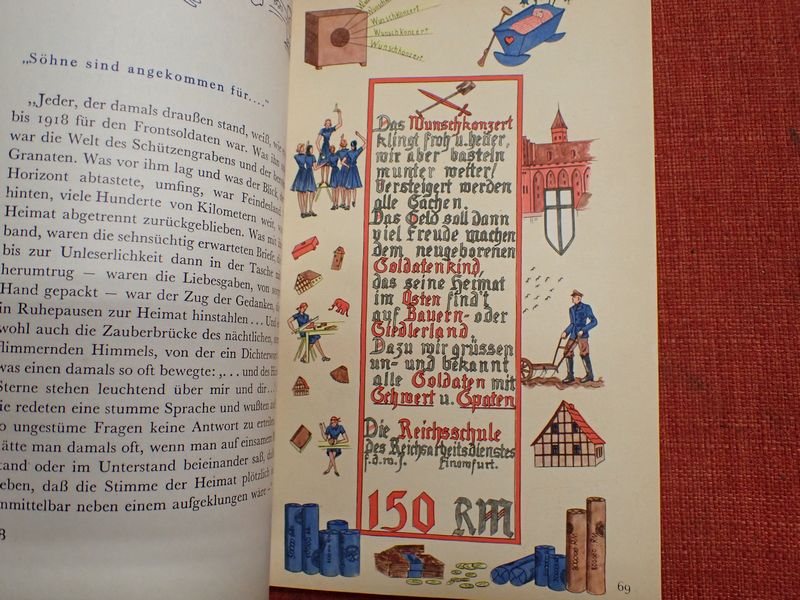 „Söhne sind angekommen für...."
„Jeder, der damals draußen stand, weiß, wie
bis 1918 für den Frontsoldaten war. Was ihn
war die Welt des Schützengrabens und der
Granaten. Was vor ihm lag und was der Blick
Horizont abtastete, umfing, war Feindesland.
hinten, viele Hunderte von Kilometern weit,
Heimat abgetrennt zurückgeblieben. Was mit
band, waren die sehnsüchtig erwarteten Briefe,
bis zur Unleserlichkeit dann in der Tasche
herumtrug — waren die Liebesgaben, von
Hand gepackt — war der Zug der Gedanken,
in Ruhepausen zur Heimat hinstahlen ... Und
wohl auch die Zauberbrücke des nächtlichen,
flimmernden Himmels, von der ein Dichterwort
was einen damals so oft bewegte: ‚... und des
Sterne stehen leuchtend über mir und dir...
sie redeten eine stumme Sprache und wußten
so ungestüme Fragen keine Antwort zu
hätte man damals oft, wenn man auf einsamem
tand oder im Unterstand beieinander saß,
eben, daß die Stimme der Heimat plötzlich
nmittelbar neben einem aufgeklungen wäre
8
Wunschkonzert
Wunschkonzert
Wunschkonzert
Das Wunschkonzert
klingt froh u. heiter,
wir aber basteln
munter weiter!
Versteigert werden
alle Sachen.
Das Geld soll dann
viel Freude machen
dem neugeborenen
Soldatenkind,
das seine Heimat
im Osten find't
auf Bauern- oder
Siedlerland.
Dazu wir grüssen
un- und bekannt
alle Soldaten mit
Schwert u. Spaten
Die Reichsschule
des Reichsarbeitsdienstes
f.d.w.J. Finowfurt.
150 RM
69